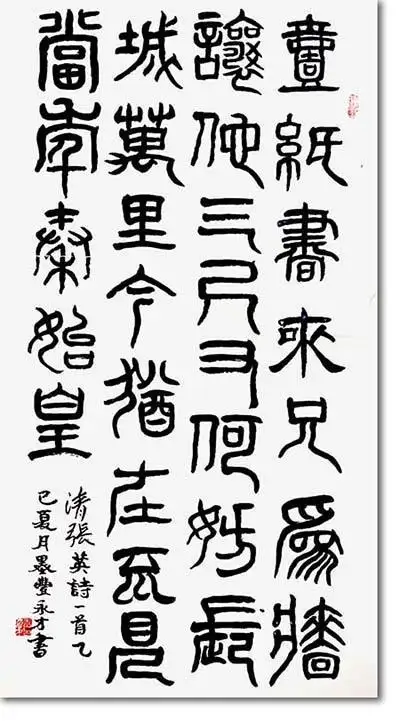 壹紙書來只為牆
讓他三尺又何妨長
城萬里今猶在不見
當年秦始皇
清張英詩一首乙
巳夏月墨豐永才書